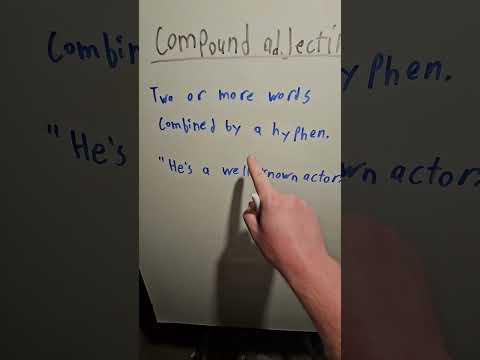 Compound adjecti
Two or more words
Combined by a hyphen.
"He's a well known actor.